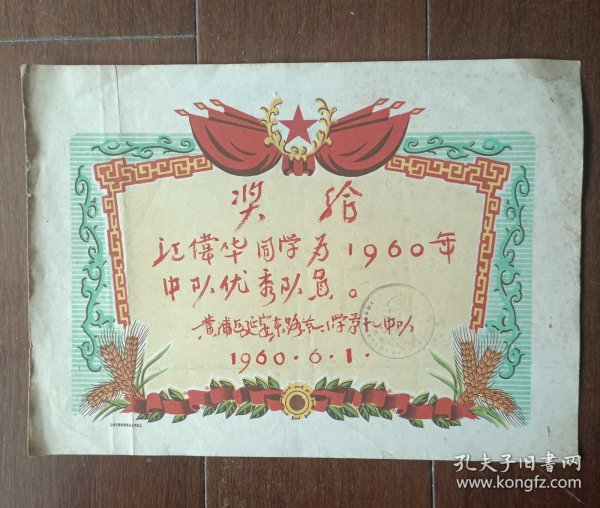 奖给
江偉华同学为1960年
中队优秀队員。
黄浦区延安东路第小学第十一中队
1960.6.1.
孔夫子旧书网
www.kongfz.com